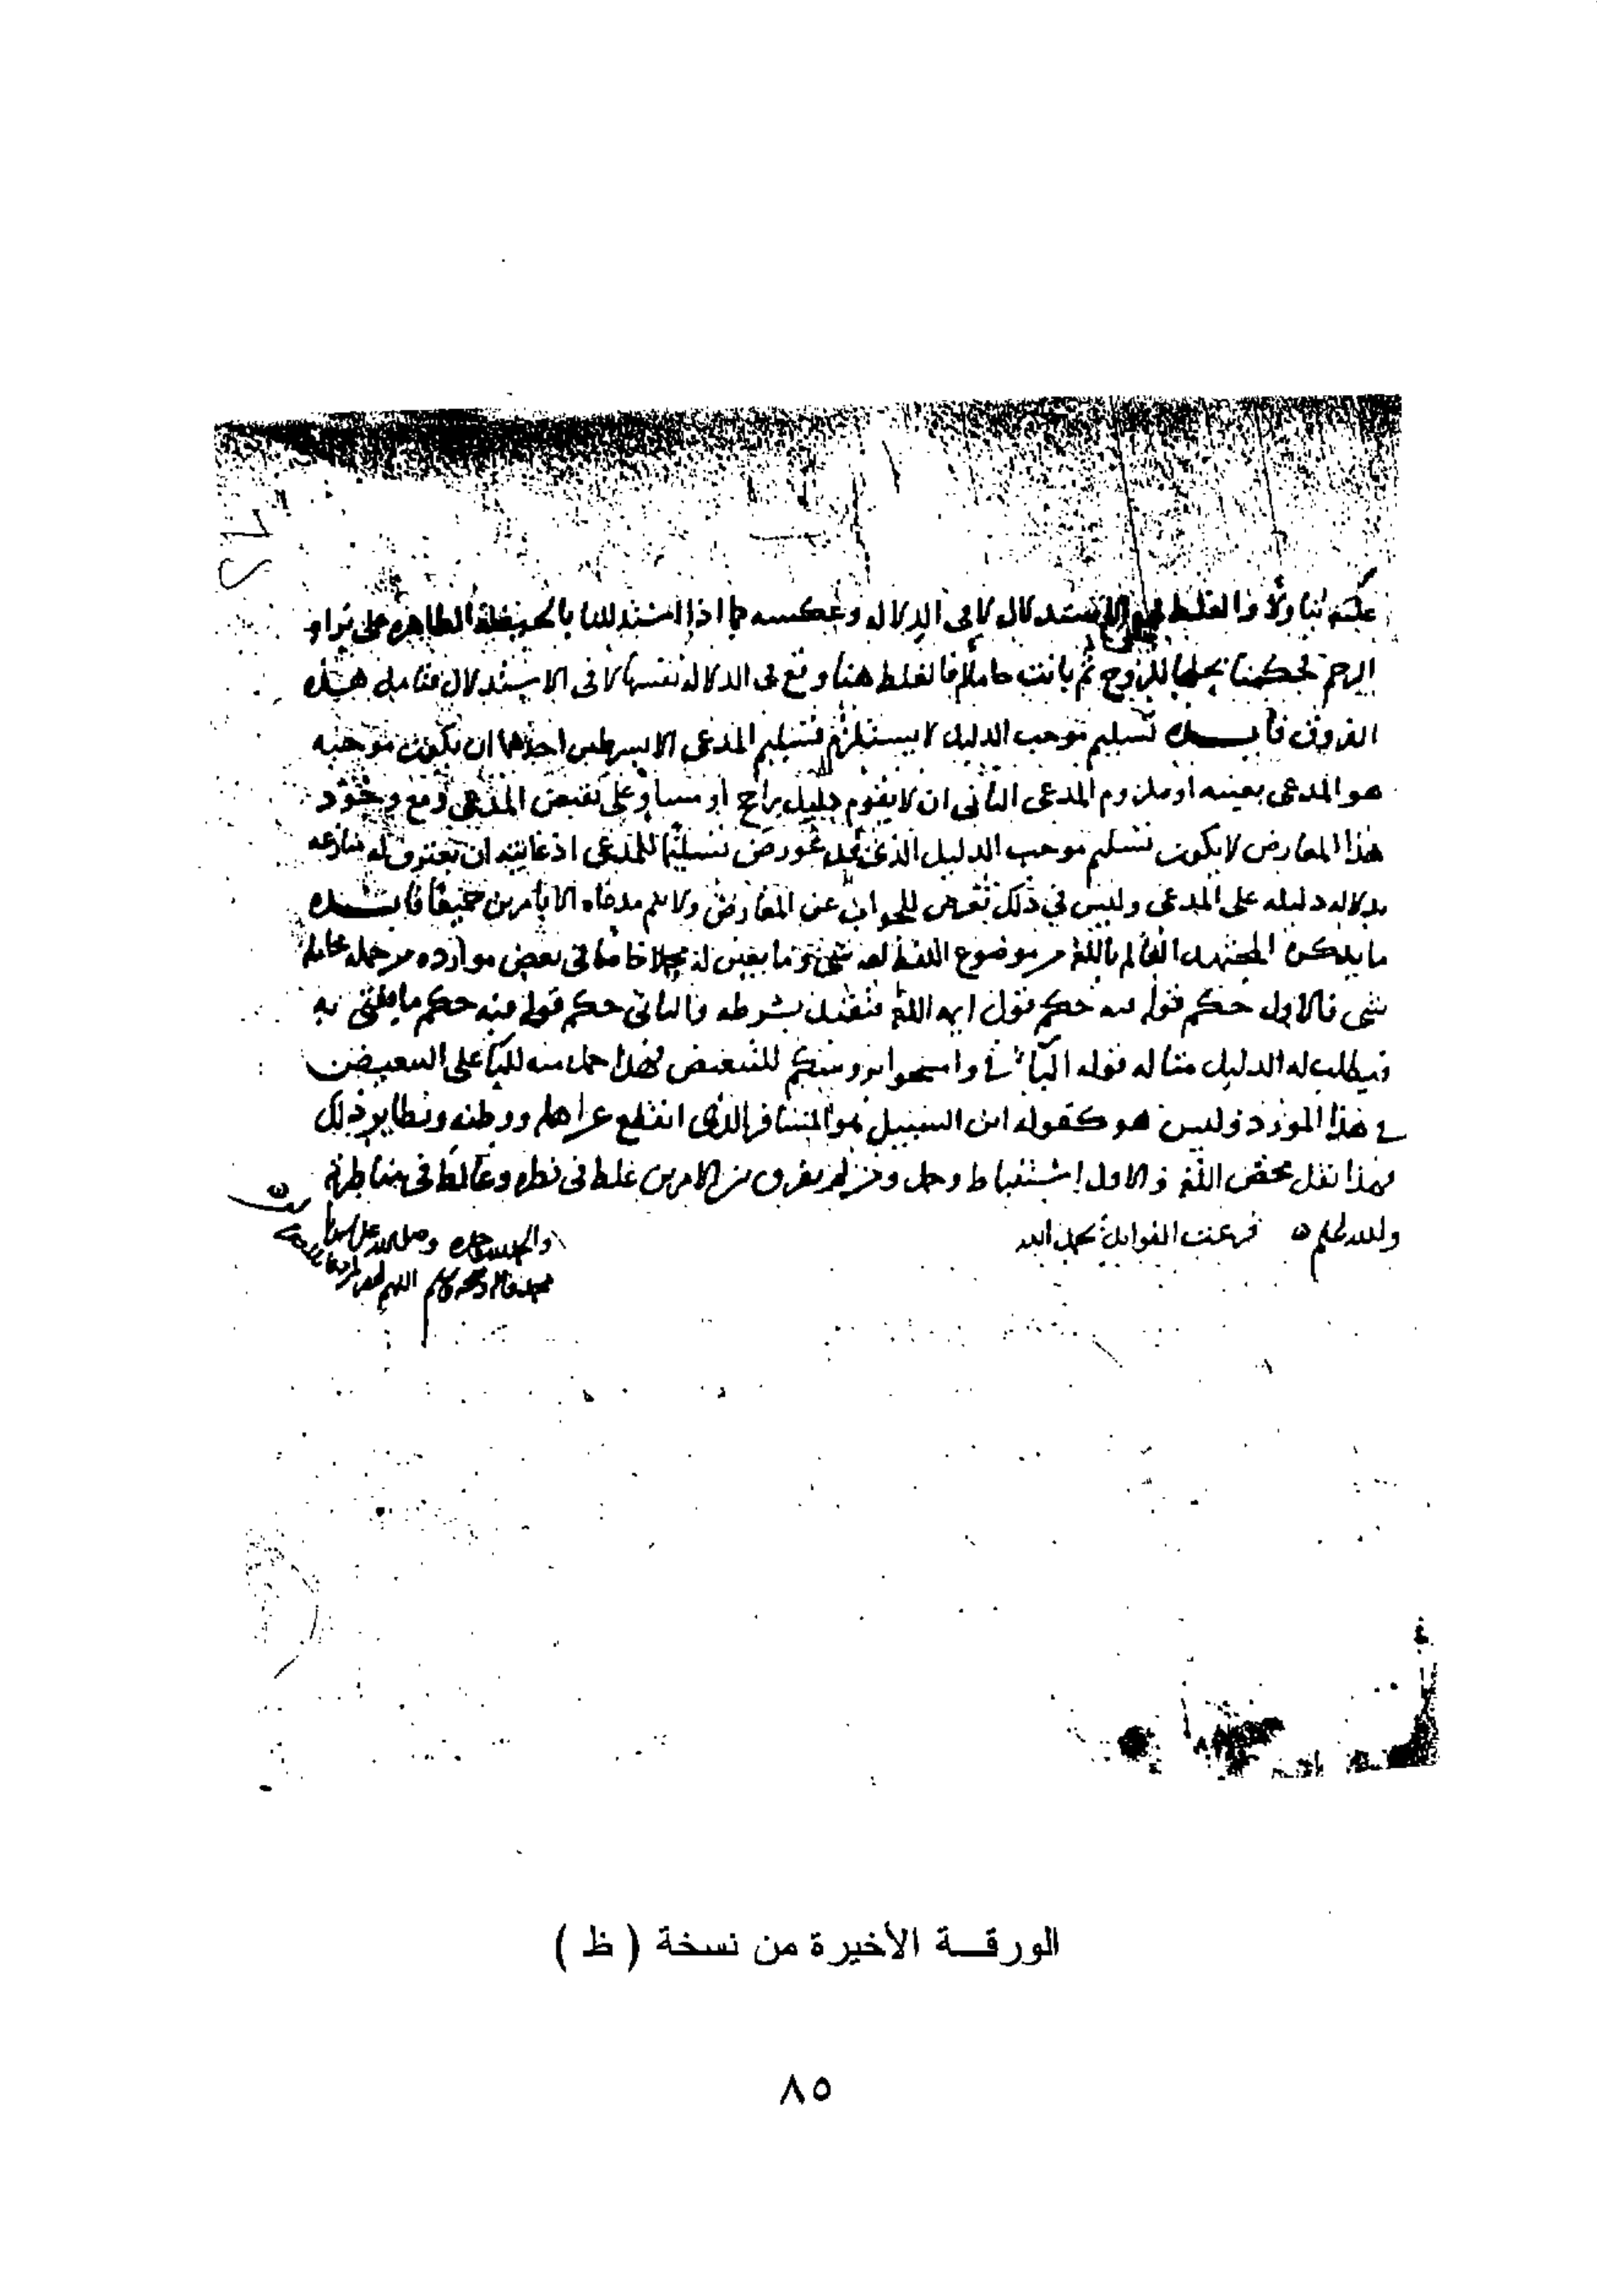 عليه بناء ولا والغلط في الاستدلال لا في الدلالة وعكسه ما اذا استدللنا بالحيضة الظاهرة على براة
الرحم فحكمنا بحلها للزوج ثم بانت حاملا فالغلط هنا وقع في الدلالة نفسها لا في الاستدلال فتامل هذه
الفروق فايدة تسليم موجب الدليل لا يستلزم تسليم المدعى الا بشرطين احدهما ان يكون موجبه
هو المدعى بعينه او ملزوم المدعى الثاني ان لا يقوم دليل راجح او مساو على نقيض المدعى ومع وجود
هذا المعارض لا يكون تسليم موجب الدليل الذي قد عورض تسليما للمدعى اذ غايته ان يعترف له منازعه
بدلالة دليله على المدعى وليس في ذلك تعرض للجواب عن المعارض ولا يتم مدعاه الا بامرين جميعا فايدة
ما يذكره المجتهد العالم باللغة من موضوع اللفظ لغة شيء وما يعين له محملا خاصا في بعض موارده من جملة محامله
شي فالاول حكم قوله فيه حكم قول ايمة اللغة فيقبل بشرطه والثاني حكم قوله فيه حكم ما يفتي به
فيطلب له الدليل مثاله قوله الباء في وامسحوا بروسكم للتبعيض فهذا حمل منه للباء على التبعيض
في هذا المورد وليس هو كقوله ابن السبيل هو المسافر الذي انقطع عن اهله ووطنه ونظاير ذلك
فهذا نقل محض اللغة والاول استنباط وحمل ومن لم يفرق بين الامرين غلط في نظره وغالط في مناظرته
والله اعلم فرغت الفوايد بحمد الله
والحمد لله وحده وصلى الله على سيدنا
محمد واله وصحبه وسلم اللهم
الورقة الأخيرة من نسخة ( ظ )
٨٥